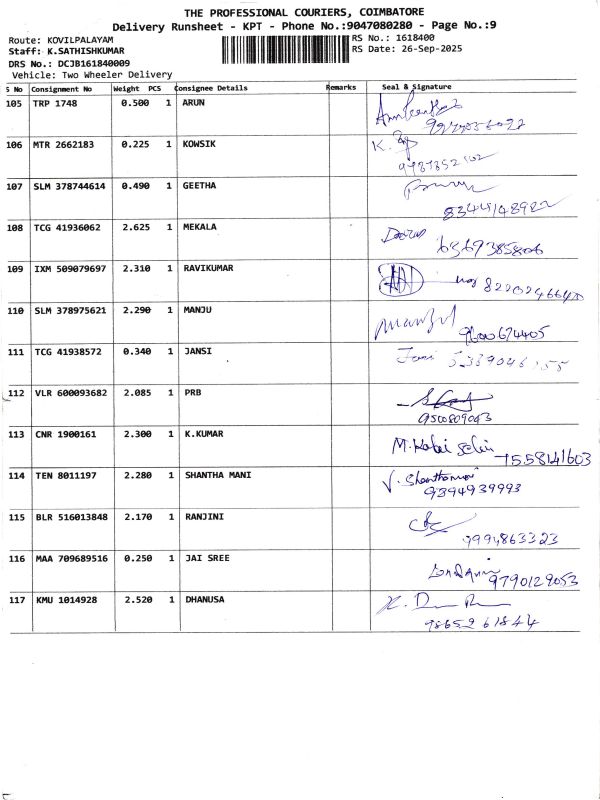 THE PROFESSIONAL COURIERS, COIMBATORE
Delivery Runsheet - KPT - Phone No.:9047080280 - Page No.:9
Route: KOVILPALAYAM
RS No.: 1618400
Staff: K.SATHISHKUMAR
RS Date: 26-Sep-2025
DRS No.: DCJB161840009
Vehicle: Two Wheeler Delivery
S No Consignment No Weight PCS Consignee Details Remarks Seal & Signature
105 TRP 1748 0.500 1 ARUN
106 MTR 2662183 0.225 1 KOWSIK K.
107 SLM 378744614 0.490 1 GEETHA
8344148922
108 TCG 41936062 2.625 1 MEKALA
6369385806
109 IXM 509079697 2.310 1 RAVIKUMAR
110 SLM 378975621 2.290 1 MANJU
9600674405
111 TCG 41938572 0.340 1 JANSI
112 VLR 600093682 2.085 1 PRB
113 CNR 1900161 2.300 1 K.KUMAR
7558141603
114 TEN 8011197 2.280 1 SHANTHA MANI V. Shanthamani
9394939993
115 BLR 516013848 2.170 1 RANJINI
9994863323
116 MAA 709689516 0.250 1 JAI SREE
9790129053
117 KMU 1014928 2.520 1 DHANUSA
98652 61844